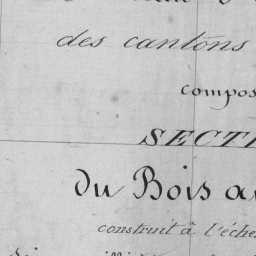 des cantons
compos
SECTI
du Bois a
construit à l'éche